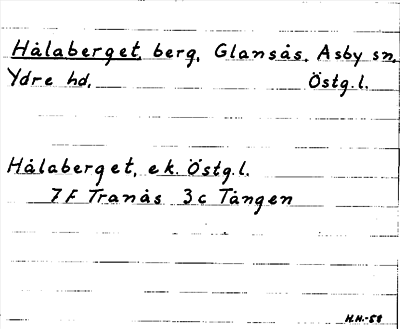 Hålaberget, berg, Glansås, Asby sn,
Ydre hd, Östg.l.
Hålaberget, ek. Östg.l.
7F Tranås 3c Tången
H.H.-58